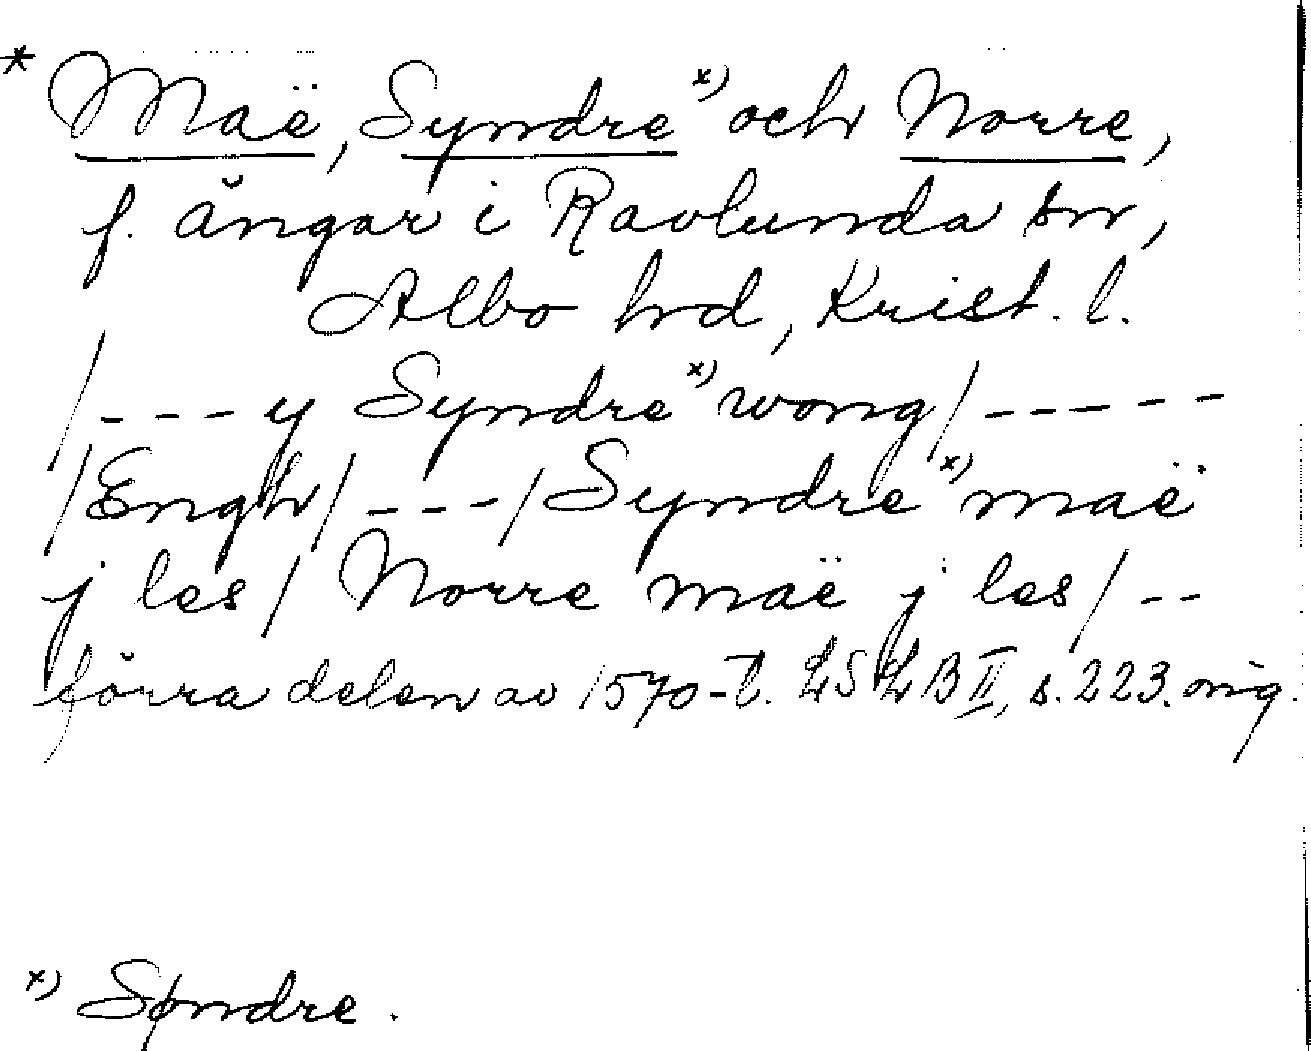 * Maë, Syndre x) och Norre,
f. ängar i Ravlunda sn,
Albo hd, Krist. l.
/---y Syndre x) wong/-----
/Engh/---/Syndre x) maë
j les/ Norre maë j les/--
förra delen av 1570-t. LSLB II, s. 223. orig.
x) Søndre.